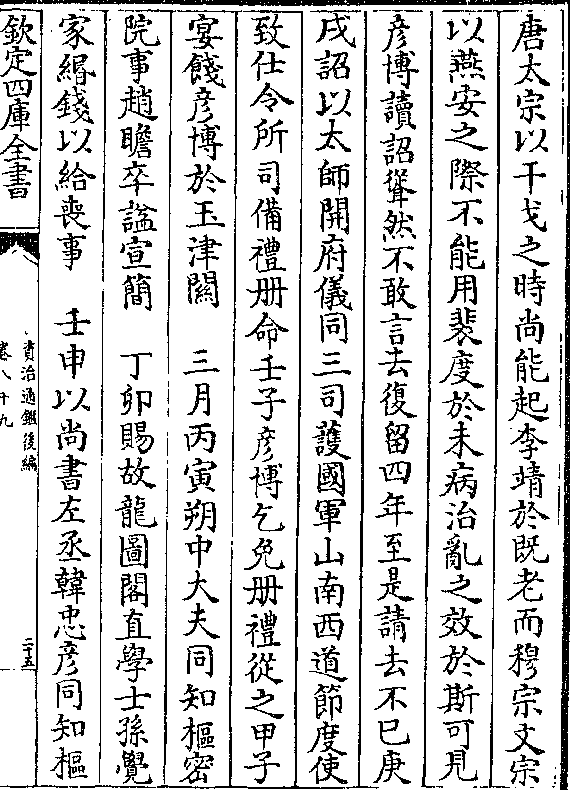 唐太宗以干戈之時尚能起李靖於既老而穆宗文宗
以燕安之際不能用裴度於未病治亂之效於斯可見
彦博讀詔聳然不敢言去復留四年至是請去不已庚
戌詔以太師開府儀同三司護國軍山南西道節度使
致仕令所司備禮册命壬子彦博乞免册禮從之甲子
宴餞彦博於玉津闗　三月丙寅朔中大夫同知樞密
院事趙瞻卒諡宣簡　丁卯賜故龍圖閣直學士孫覺
家緡錢以給喪事　壬申以尚書左丞韓忠彦同知樞
欽定四庫全書
資治通鑑後編
卷八十九
二十五